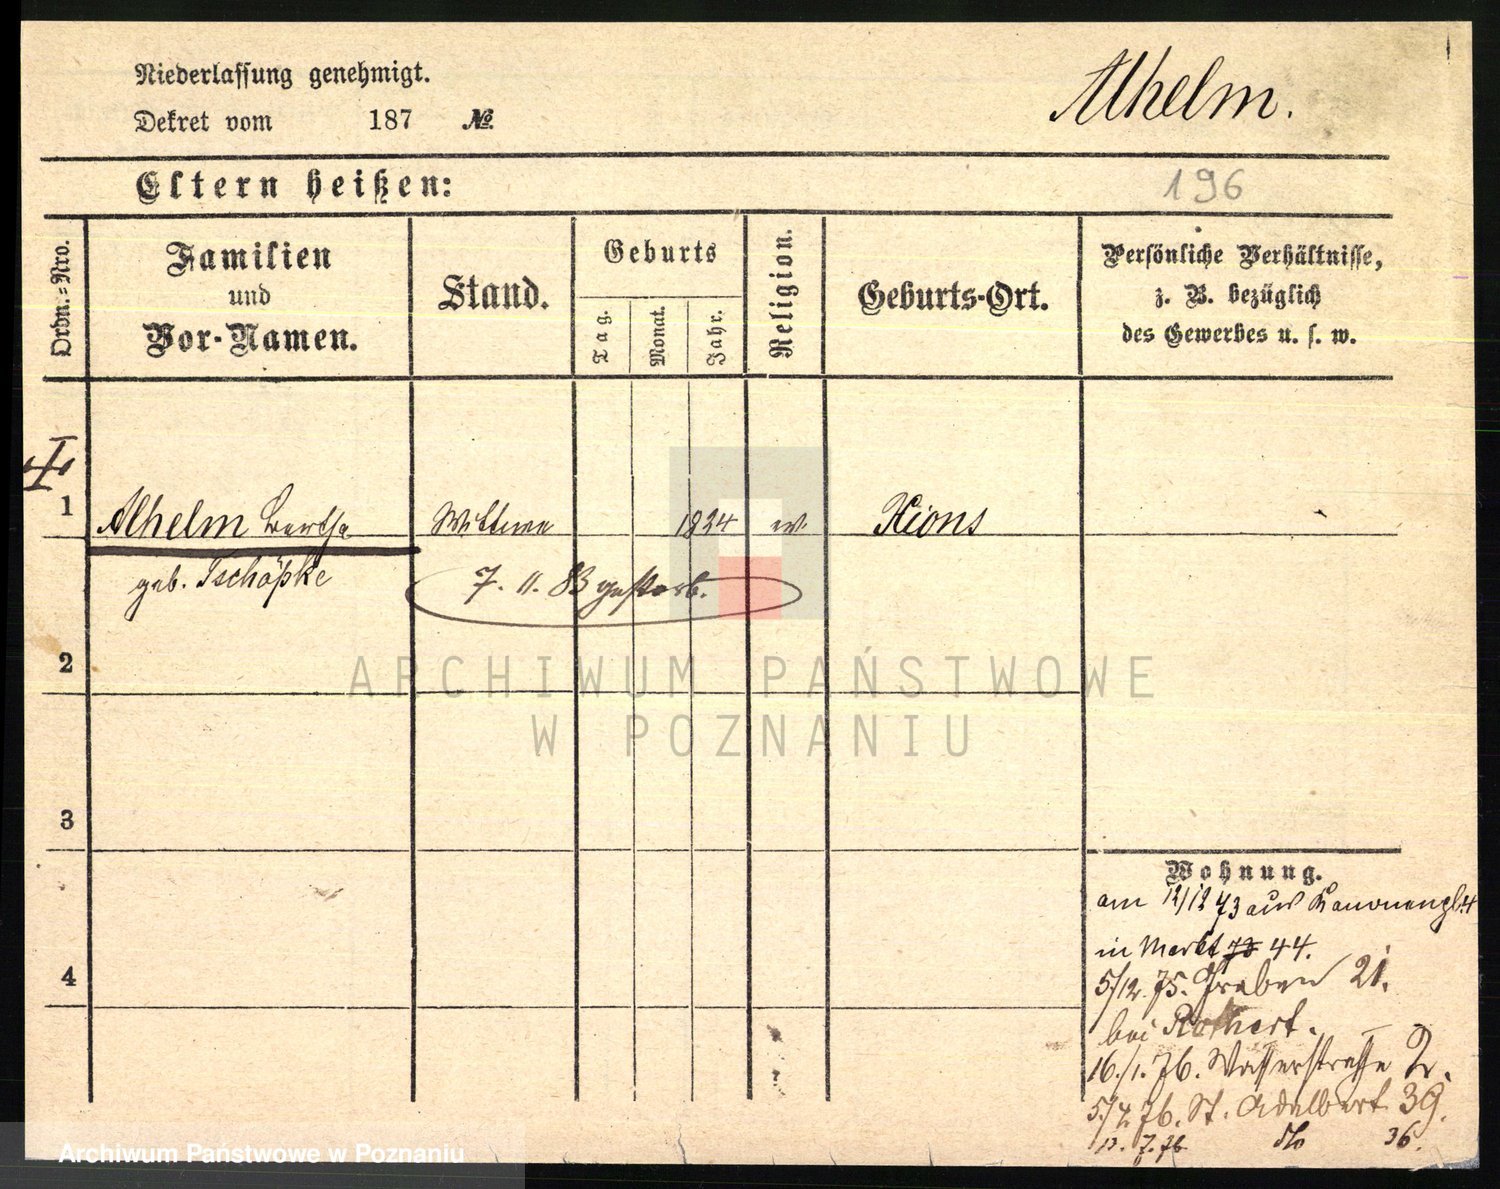 Niederlassung genehmigt.
Alhelm.
Dekret vom 187 No.
Eltern heißen:
196
Ordn.-Nro.
Familien
und
Vor-Namen.
Stand.
Geburts
Tag.
Monat.
Jahr.
Religion.
Geburts-Ort.
Persönliche Verhältnisse,
z. B. bezüglich
des Gewerbes u. s. w.
1 Alhelm Bertha Wittwe 1824 ev. Xions
geb. Tschöpke 7. 11. 83 gestorb.
2
3
4
Wohnung.
am 12/12 73 aus Kanonenpl. 4
in Markt 44.
5/12. 75. Graben 21.
bei Rothert.
16./1. 76. Wasserstrasse 2.
5/7. 76. St. Adalbert 39.
7. 76 dto 36.
ARCHIWUM PAŃSTWOWE
W POZNANIU
Archiwum Państwowe w Poznaniu